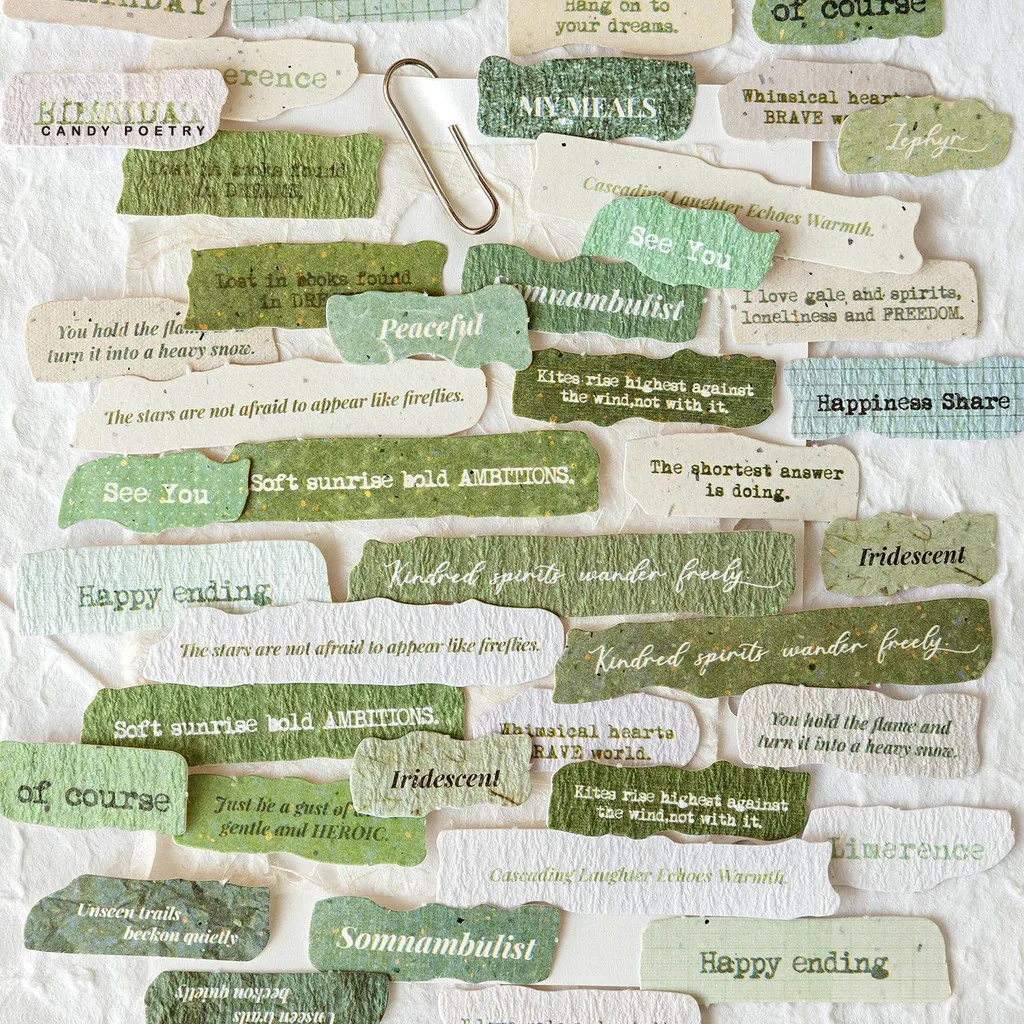 BIRTHDAY
Hang on to
your dreams.
of course
erence
BIRTHDAY
CANDY POETRY
MY MEALS
Whimsical hearts
BRAVE
Zephyr
Lost in books found
in DREAMS.
Cascading Laughter Echoes Warmth.
See You
Lost in books found
in
Somnambulist
I love gale and spirits,
loneliness and FREEDOM.
You hold the
turn it into a heavy snow.
Peaceful
The stars are not afraid to appear like fireflies.
Kites rise highest against
the wind,not with it.
Happiness Share
See You
Soft sunrise bold AMBITIONS.
The shortest answer
is doing.
Happy ending
Kindred spirits wander freely
Iridescent
The stars are not afraid to appear like fireflies.
Kindred spirits wander freely
Soft sunrise bold AMBITIONS.
Whimsical hearts
BRAVE world.
You hold the flame and
turn it into a heavy snow.
of course
Just be a gust of
gentle and HEROIC.
Iridescent
Kites rise highest against
the wind,not with it.
Limerence
Cascading Laughter Echoes Warmth.
Unseen trails
beckon quietly
Somnambulist
Happy ending
Unseen trails
beckon quietly